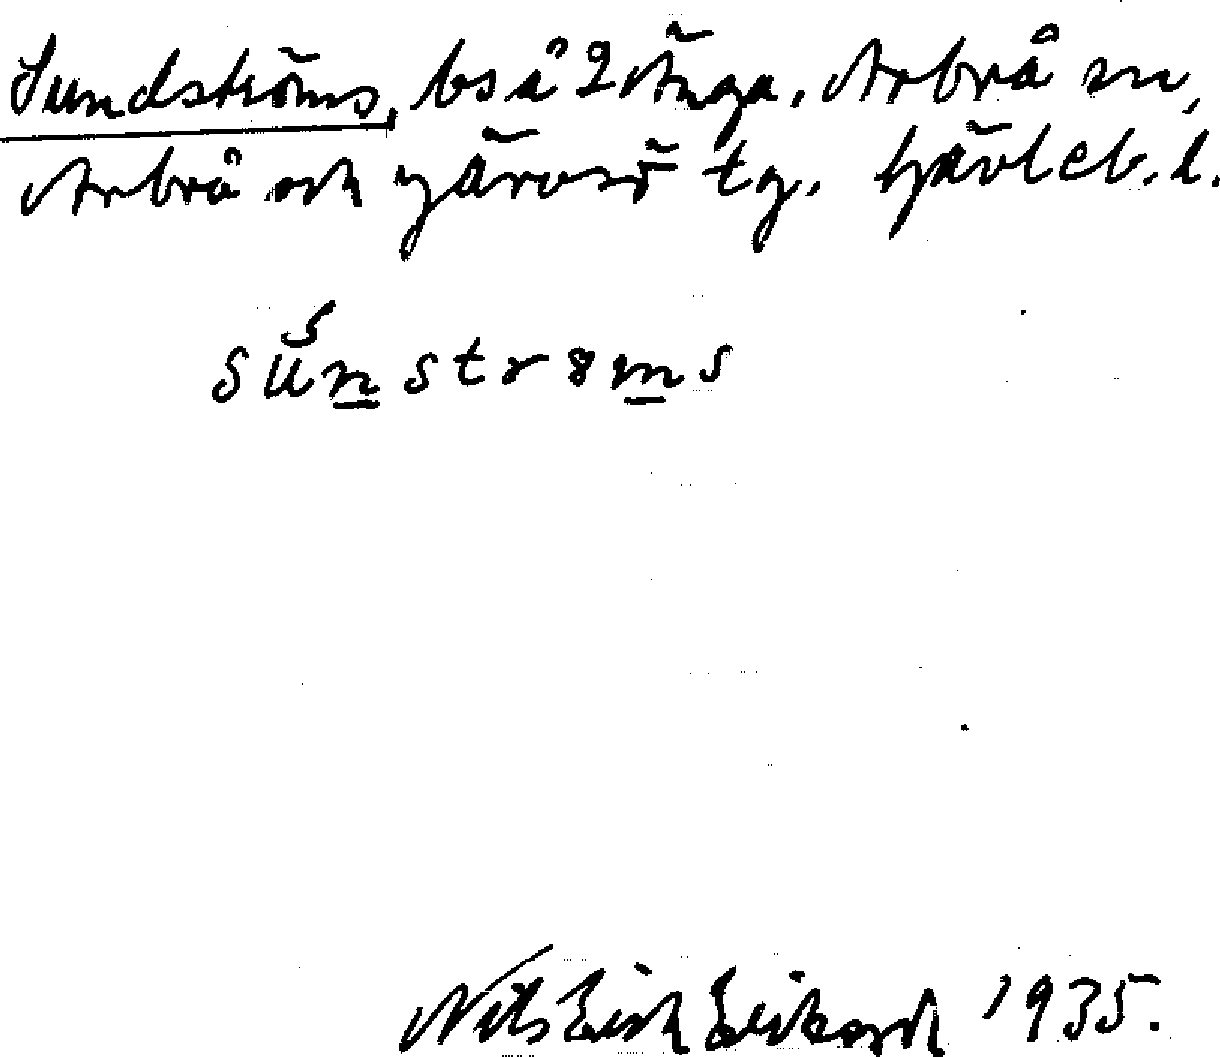 Sundströms, bs å 2 Änga, Arbrå sn,
Arbrå och Järvsö tg. Gävleb. l.
sunstrɵms
Nils Erik 1935.